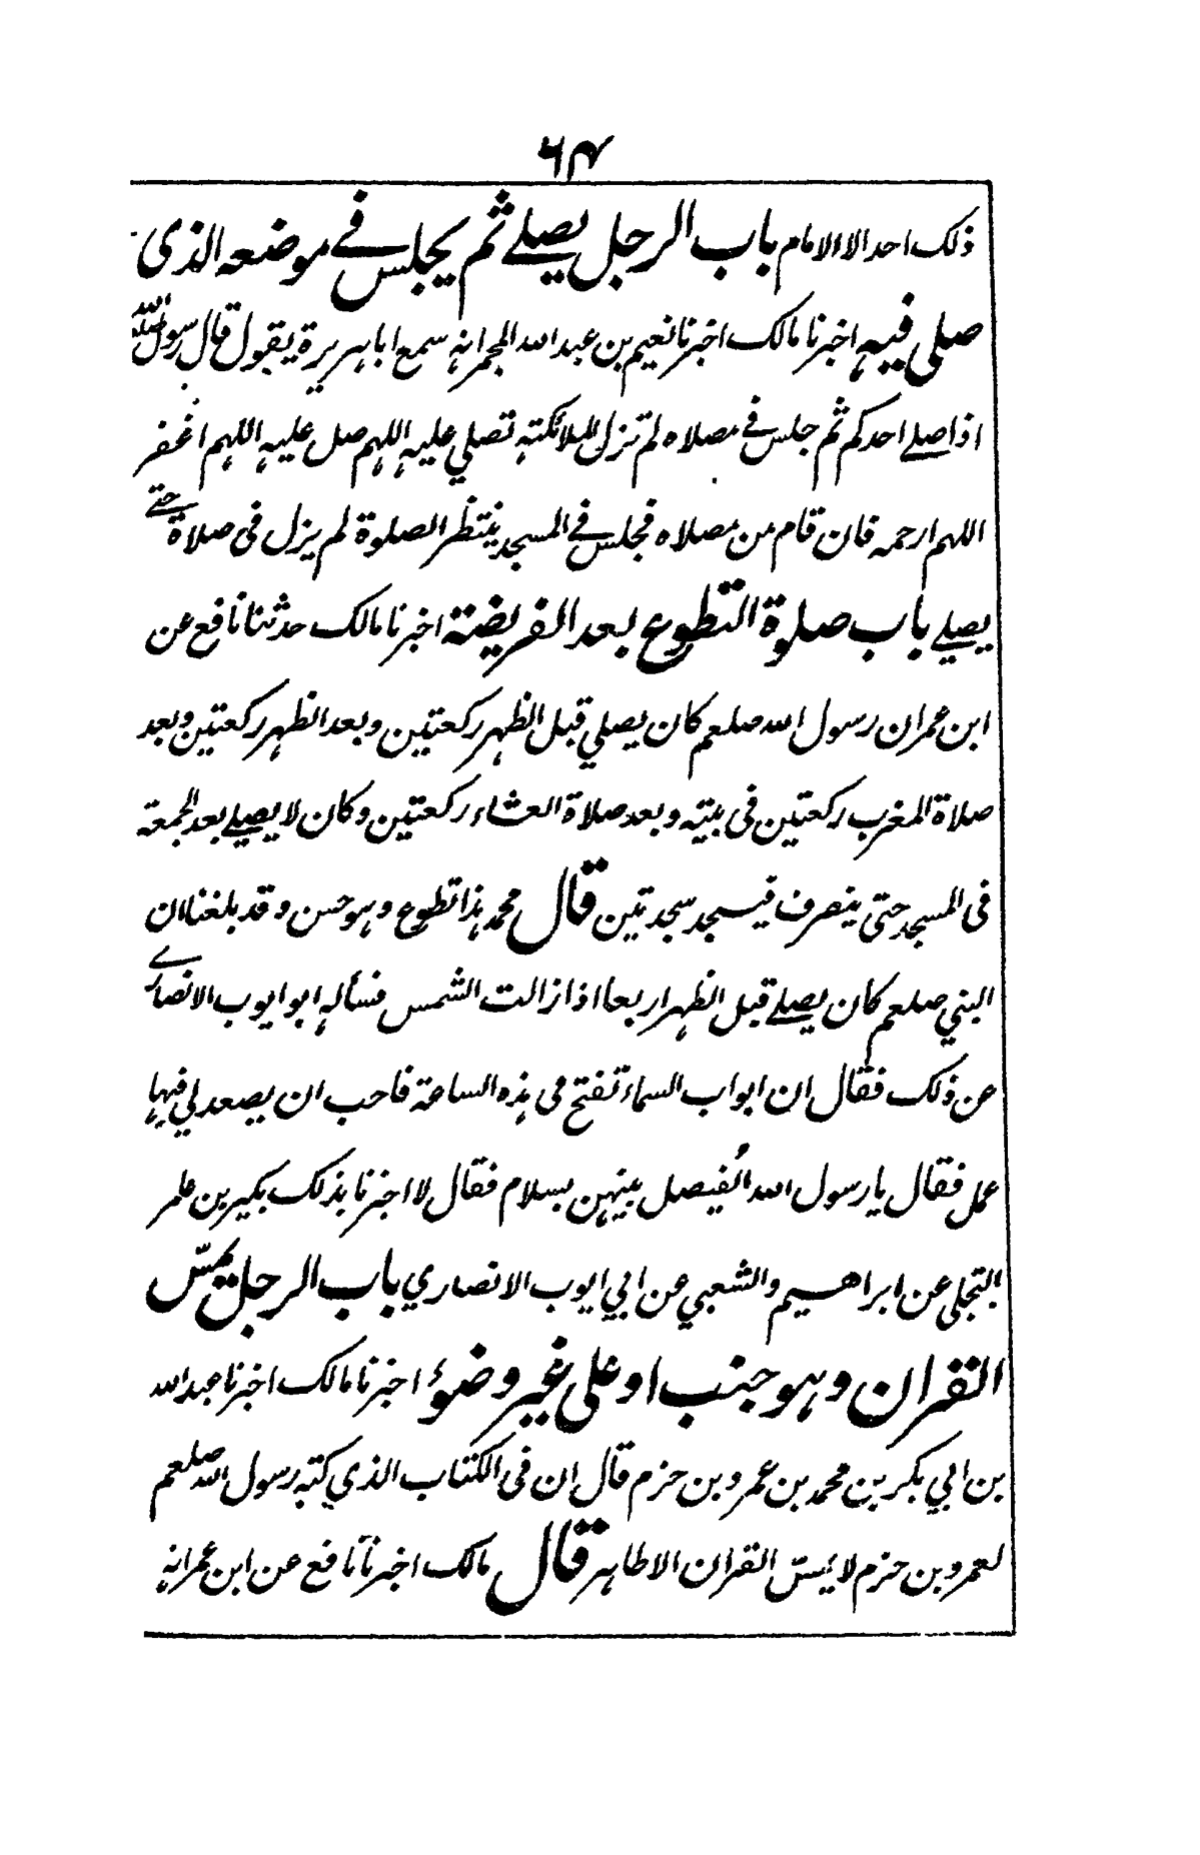 ٦٤
ذلك احد الا الامام باب الرجل يصلے ثم يجلس فے موضعه الذى
صلى فيه اخبرنا مالك اخبرنا نعيم بن عبد الله المجمر انه سمع ابا هريرة يقول قال رسول الله
اذا صلے احدكم ثم جلس فے مصلاه لم تزل الملائكته تصلي عليه اللهم صل عليه اللهم اغفر
اللهم ارحمه فان قام من مصلاه فجلس فے المسجد ينتظر الصلوة لم يزل فى صلاة حتے
يصلے باب صلوة التطوع بعد الفريضة اخبرنا مالك حدثنا نافع عن
ابن عمر ان رسول الله صلعم كان يصلي قبل الظهر ركعتين وبعد الظهر ركعتين وبعد
صلاة المغرب ركعتين فى بيته وبعد صلاة العشاء ركعتين وكان لا يصلے بعد الجمعة
فى المسجد حتى ينصرف فيسجد سجدتين قال محمد هذا تطوع وهو حسن وقد بلغنا ان
النبي صلعم كان يصلے قبل الظهر اربعا اذا زالت الشمس فسأله ابو ايوب الانصارے
عن ذلك فقال ان ابواب السماء تفتح فى هذه الساعة فاحب ان يصعد لي فيها
عمل فقال يا رسول الله اَيفصل بينهن بسلام فقال لا اخبرنا بذلك بكير بن عامر
البجلى عن ابراهيم والشعبي عن ابي ايوب الانصاري باب الرجل يمسّ
القران وهو جنب او على غير وضوء اخبرنا مالك اخبرنا عبد الله
بن ابي بكر بن محمد بن عمرو بن حزم قال ان فى الكتاب الذي كتبه رسول الله صلعم
لعمرو بن حزم لا يمسّ القران الا طاهر قال مالك اخبرنا نافع عن ابن عمر انه